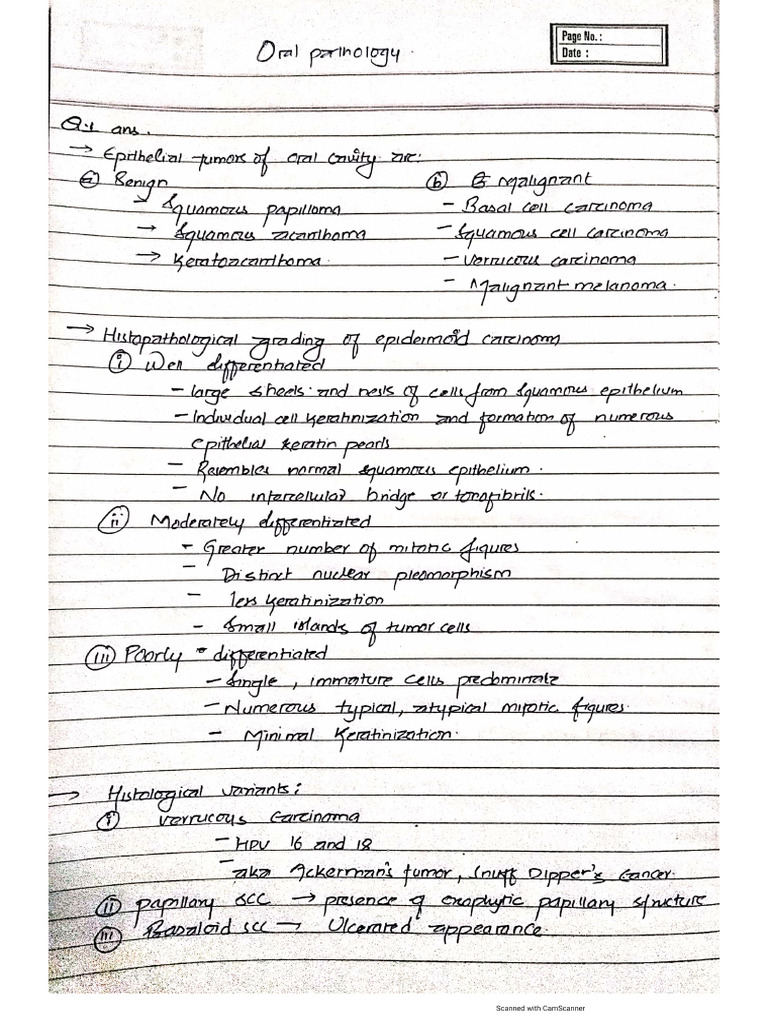 Oral pathology.
Page No. :
Date :
Q.1 ans.
→ Epithelial tumors of oral cavity are:
ⓐ Benign
→ Squamous papilloma
→ Squamous acanthoma
→ Keratoacanthoma.
ⓑ Malignant
- Basal cell carcinoma
- Squamous cell carcinoma
- Verrucous carcinoma
- Malignant melanoma.
→ Histopathological grading of epidermoid carcinoma
ⓘ Well differentiated
- large sheets and nests of cells from squamous epithelium
- Individual cell keratinization and formation of numerous
epithelial keratin pearls
- Resembles normal squamous epithelium.
- No intercellular bridge or tonofibrils.
ⅱ Moderately differentiated
- Greater number of mitotic figures
- Distinct nuclear pleomorphism
- less keratinization
- Small islands of tumor cells
ⅲ Poorly - differentiated
- Single, immature cells predominate
- Numerous typical, atypical mitotic figures.
- Minimal keratinization.
→ Histological variants:
ⓘ Verrucous carcinoma
- HPV 16 and 18
- aka Ackerman's tumor, Snuff Dipper's cancer.
ⅱ papillary SCC → presence of exophytic papillary structure
ⅲ Basaloid SCC → Ulcerated appearance.
Scanned with CamScanner